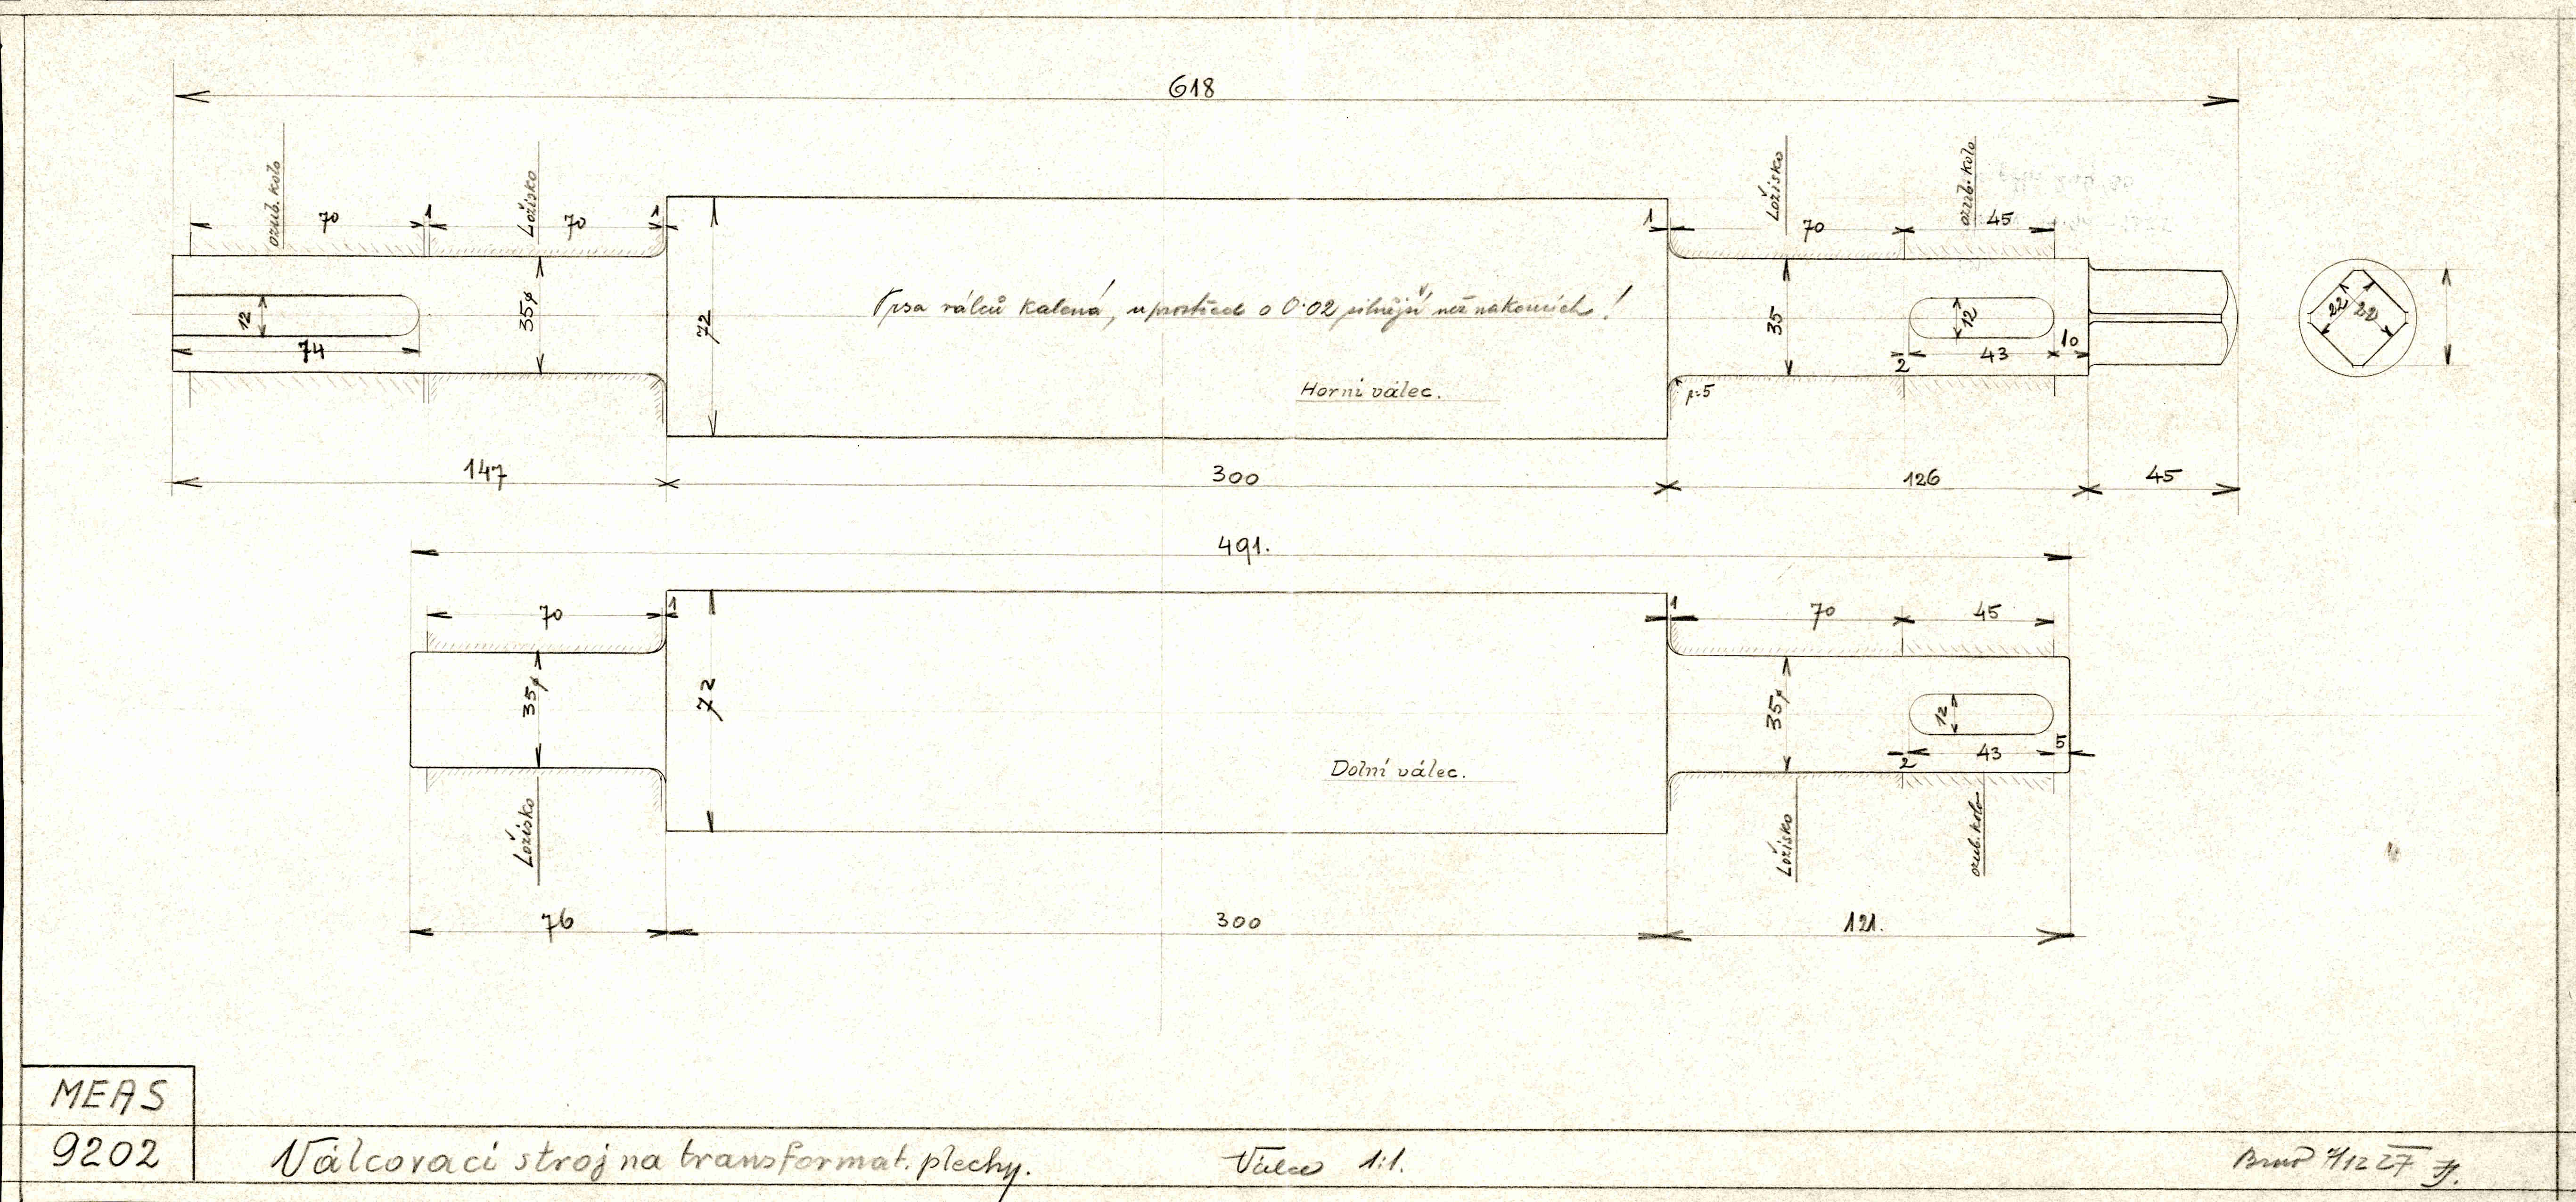 618
ozub. kolo
Ložisko
Ložisko
ozub. kolo
70 1 70 1
1 70 45
12
74
35ø
72
válců kalená, uprostřed o 0·02 silnější než na koncích!
Horní válec.
35
12
2 43 10
r=5
22 22
147 300 126 45
491.
70 1
1 70 45
35ø
72
35ø
12
2 43 5
Dolní válec.
Ložisko
Ložisko
ozub. kolo
76 300 121.
MEAS
9202
Válcovací stroj na transformat. plechy.
Válce 1:1.
Brno